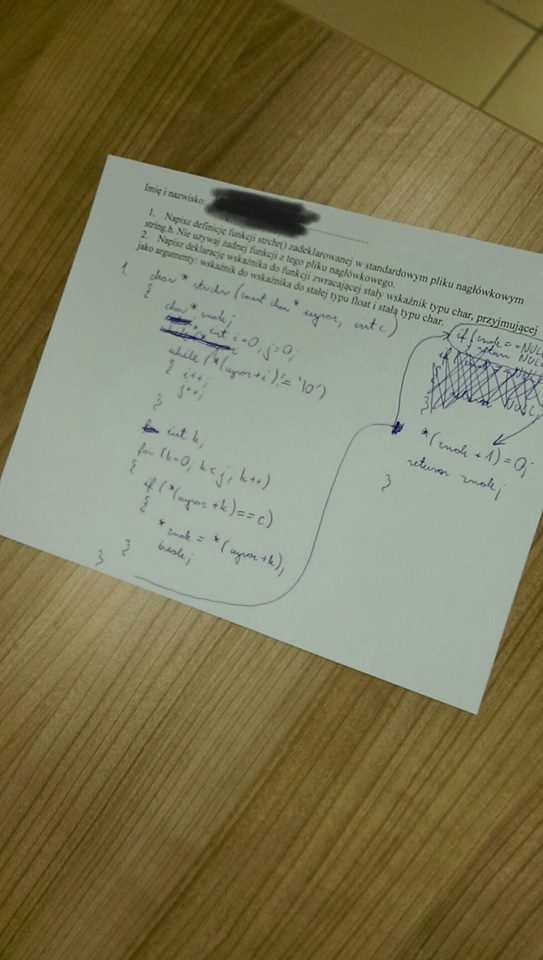 Imię i nazwisko:
1. Napisz definicję funkcji strchr() zadeklarowanej w standardowym pliku nagłówkowym
string.h. Nie używaj żadnej funkcji z tego pliku nagłówkowego.
2. Napisz deklarację wskaźnika do funkcji zwracającej stały wskaźnik typu char, przyjmującej
jako argumenty: wskaźnik do wskaźnika do stałej typu float i stałą typu char.
1. char * strchr (const char * wyraz, int c)
{
char * znak;
int i=0, j=0;
while (*(wyraz+i) != '\0')
{ i++;
j++;
}
int k;
for (k=0; k<j; k++)
{
if (*(wyraz+k)==c)
{
*znak = *(wyraz+k);
break;
}
}
if (znak==NULL
return NULL
*(znak+1)=0;
return znak;
}